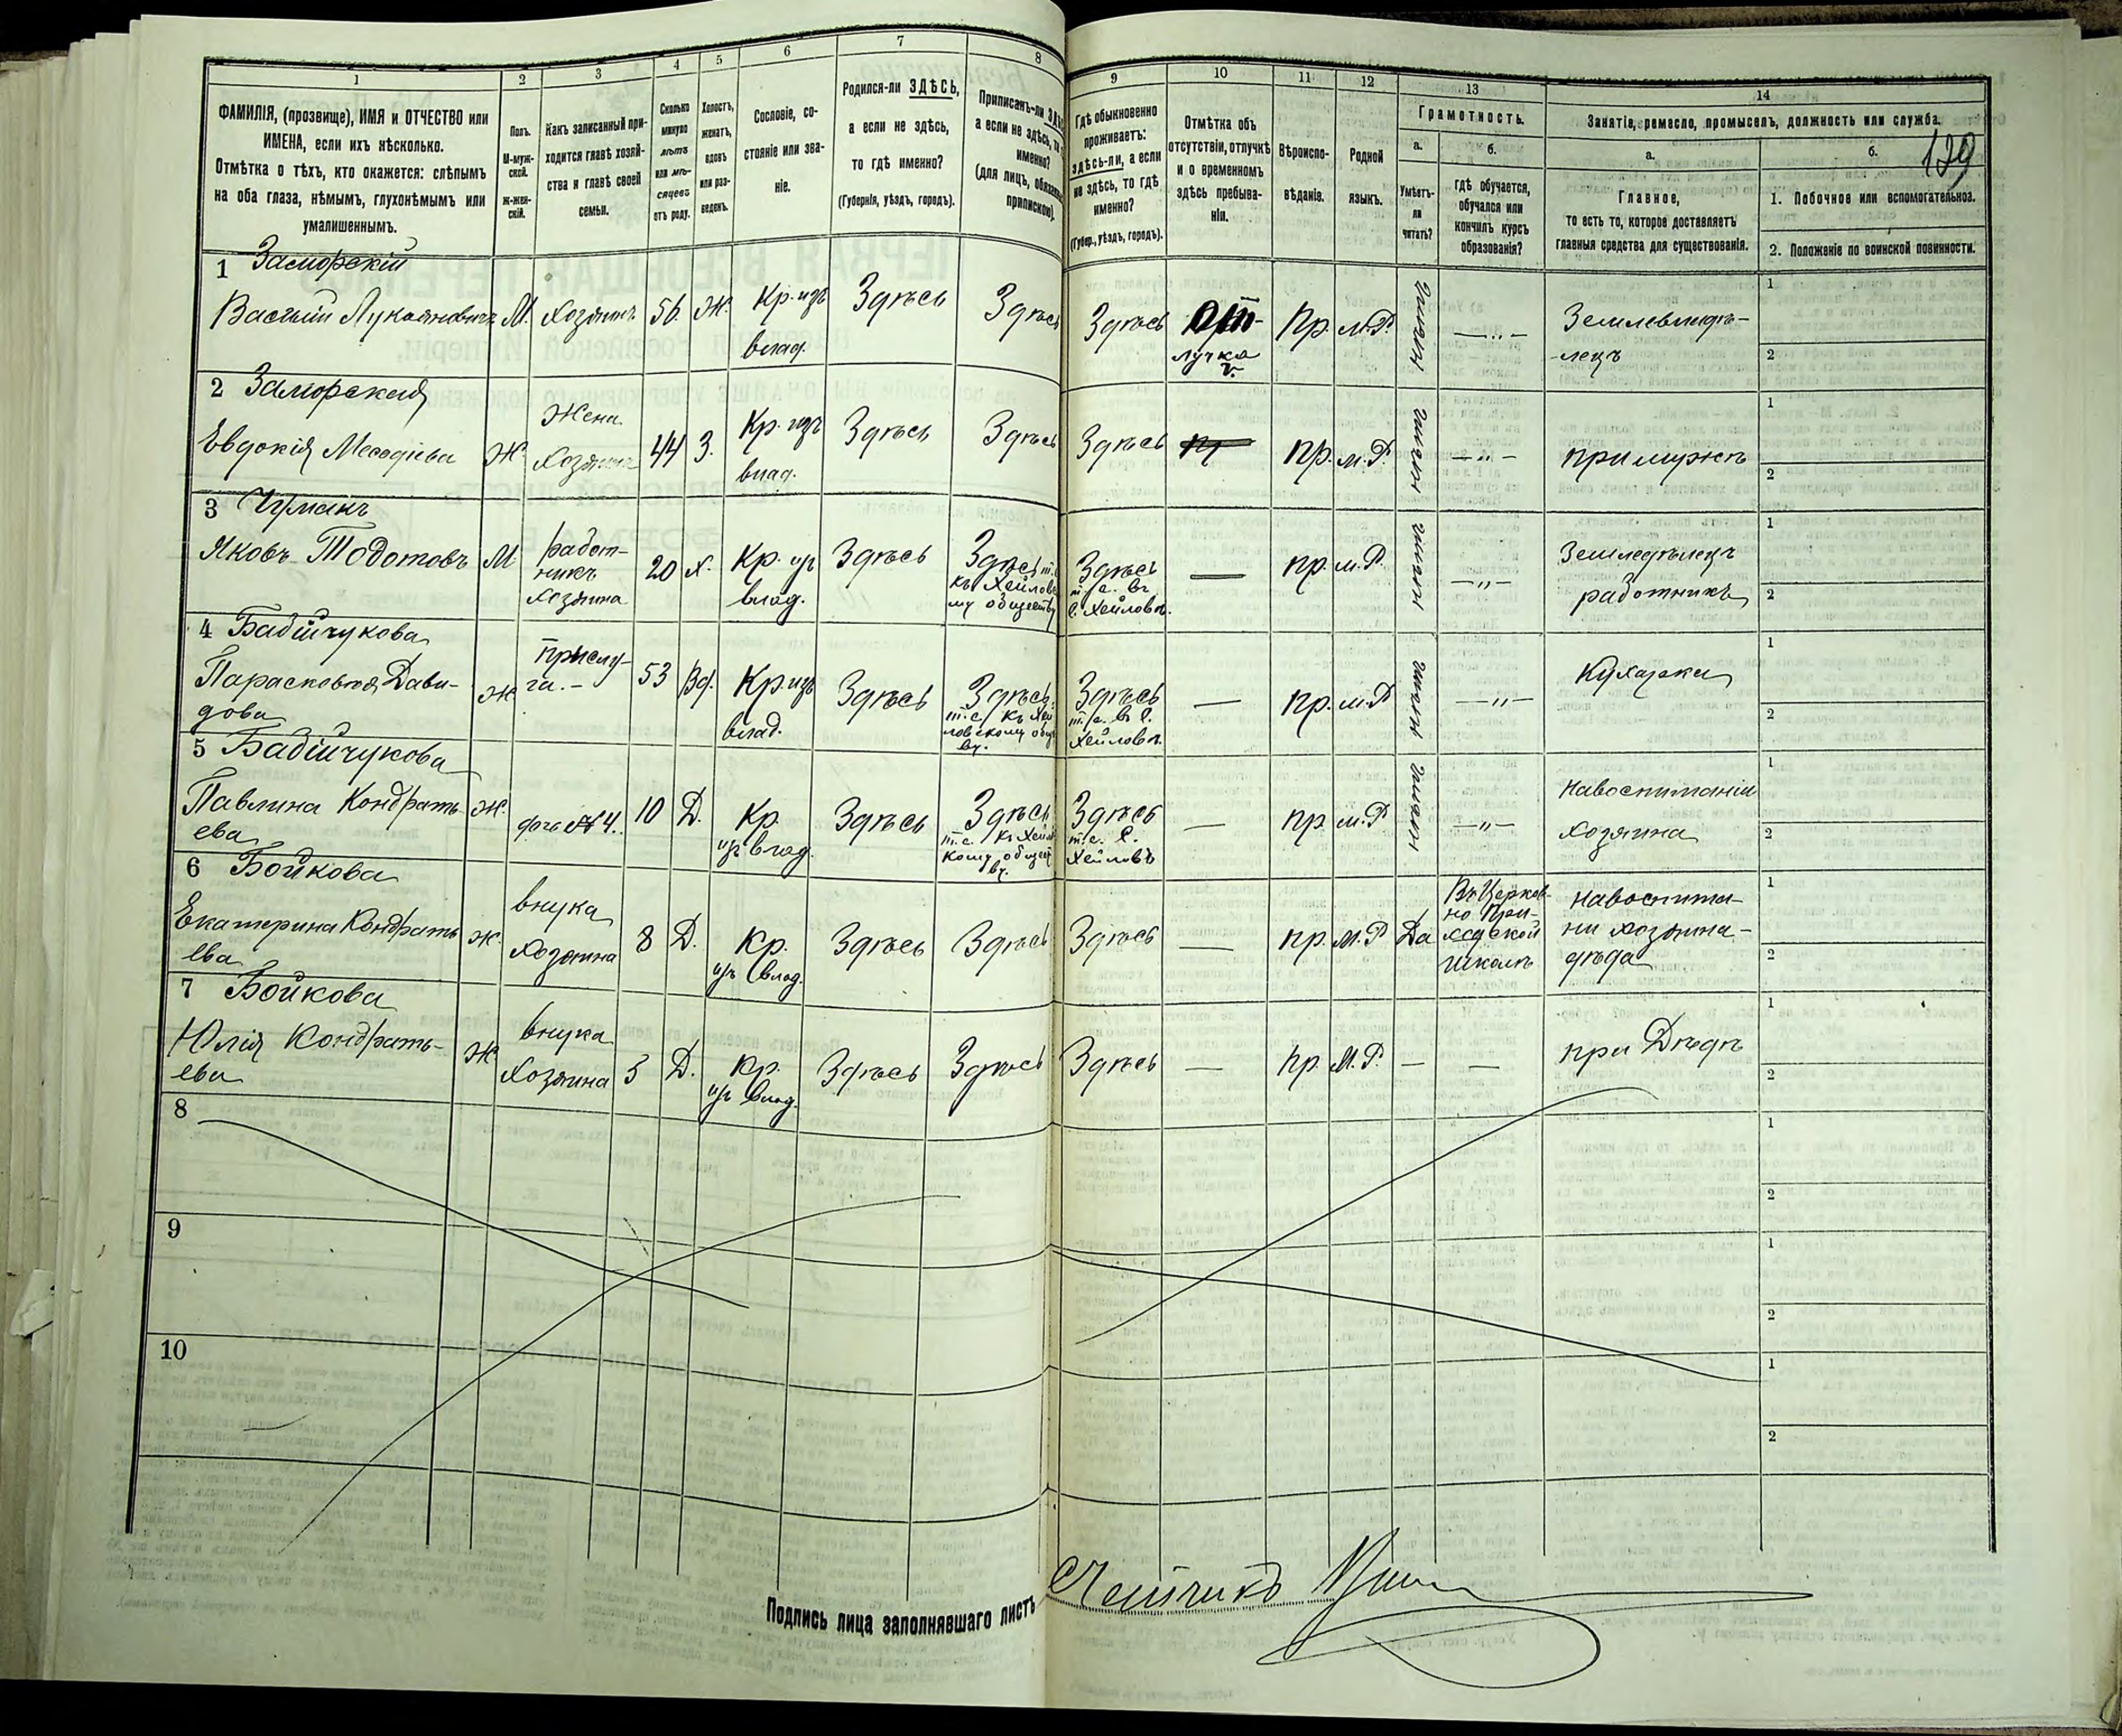 1
2
3
4
5
6
7
8
ФАМИЛІЯ, (прозвище), ИМЯ и ОТЧЕСТВО или
ИМЕНА, если ихъ нѣсколько.
Отмѣтка о тѣхъ, кто окажется: слѣпымъ
на оба глаза, нѣмымъ, глухонѣмымъ или
умалишеннымъ.
Полъ.
М-муж-
ской.
Ж-жен-
скій.
Какъ записанный при-
ходится главѣ хозяй-
ства и главѣ своей
семьи.
Сколько
минуло
лѣтъ
или мѣ-
сяцевъ
отъ роду.
Холостъ,
женатъ,
вдовъ
или раз-
веденъ.
Сословіе, со-
стояніе или зва-
ніе.
Родился-ли ЗДѢСЬ,
а если не здѣсь,
то гдѣ именно?
(Губернія, уѣздъ, городъ).
Приписанъ-ли
а если не здѣсь,
именно?
(для лицъ,
припискою).
9
10
11
12
13
14
Гдѣ обыкновенно
проживаетъ:
здѣсь-ли, а если
не здѣсь, то гдѣ
именно?
(Губер., уѣздъ, городъ).
Отмѣтка объ
отсутствіи, отлучкѣ
и о временномъ
здѣсь пребыва-
ніи.
Вѣроиспо-
вѣданіе.
Родной
языкъ.
Грамотность.
а.
Умѣетъ-
ли
читать?
б.
Гдѣ обучается,
обучался или
кончилъ курсъ
образованія?
Занятіе, ремесло, промыселъ, должность или служба.
139
а.
Главное,
то есть то, которое доставляетъ
главныя средства для существованія.
б.
1. Побочное или вспомогательное.
2. Положеніе по воинской повинности.
1 Заморскій
Василій Лукьяновичъ М. Хозяинъ 56 Ж. Кр. изъ
влад.
Здѣсь Здѣсь Здѣсь От-
лучка
Пр м.Р. Землевладѣ-
лецъ
1
2
2 Заморская
Евдокія Меѳодіева Ж Жена
Хозяина 44 З. Кр. изъ
влад.
Здѣсь Здѣсь Здѣсь пр. м.Р. при мужѣ
1
2
3
Яковъ М работ-
никъ
хозяина
20 х. Кр. из
влад.
Здѣсь Здѣсь т.е.
къ Хейловс
му обществу
Здѣсь
т.е. въ
с. Хейловѣ.
— пр м.Р. Земледѣлецъ
работникъ
1
2
4 Бабійчукова
Парасковія Дави-
дова
Ж прислу-
га. 53 Вд. Кр. изъ
влад.
Здѣсь Здѣсь
т.е. къ Хей
ловскому
Здѣсь
т.е. въ с.
Хейловѣ.
— пр. м.Р Кухарка
1
2
5 Бабійчукова
Павлина Кондрать
ева
Ж. дочь №4. 10 Д. Кр.
из влад.
Здѣсь Здѣсь
т.е. къ
Здѣсь
т.е. с.
Хейловѣ
— пр м.Р На воспитаніи
хозяина
1
2
6 Бойкова
Екатерина Кондрать
ева
Ж. внука
хозяина 8 Д. Кр.
изъ влад.
Здѣсь Здѣсь Здѣсь — пр. м.Р Да Въ Церков-
но При-
ходской
школѣ
На воспита-
ни хозяина-
дѣда
1
2
7 Бойкова
Юлія Кондрать-
ева
Ж внука
хозяина 5 Д. Кр.
изъ влад.
Здѣсь Здѣсь Здѣсь — пр. м.Р. — — при Дѣдѣ
1
2
8
1
2
9
1
2
10
1
2
Подпись лица заполнявшаго листъ Счетчикъ